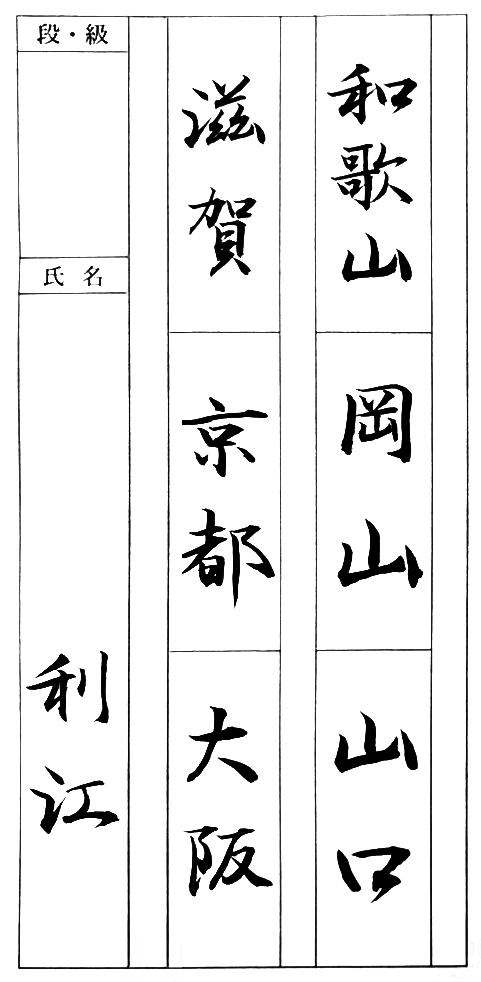 和歌山
岡山
山口
滋賀
京都
大阪
段・級
氏名
利江